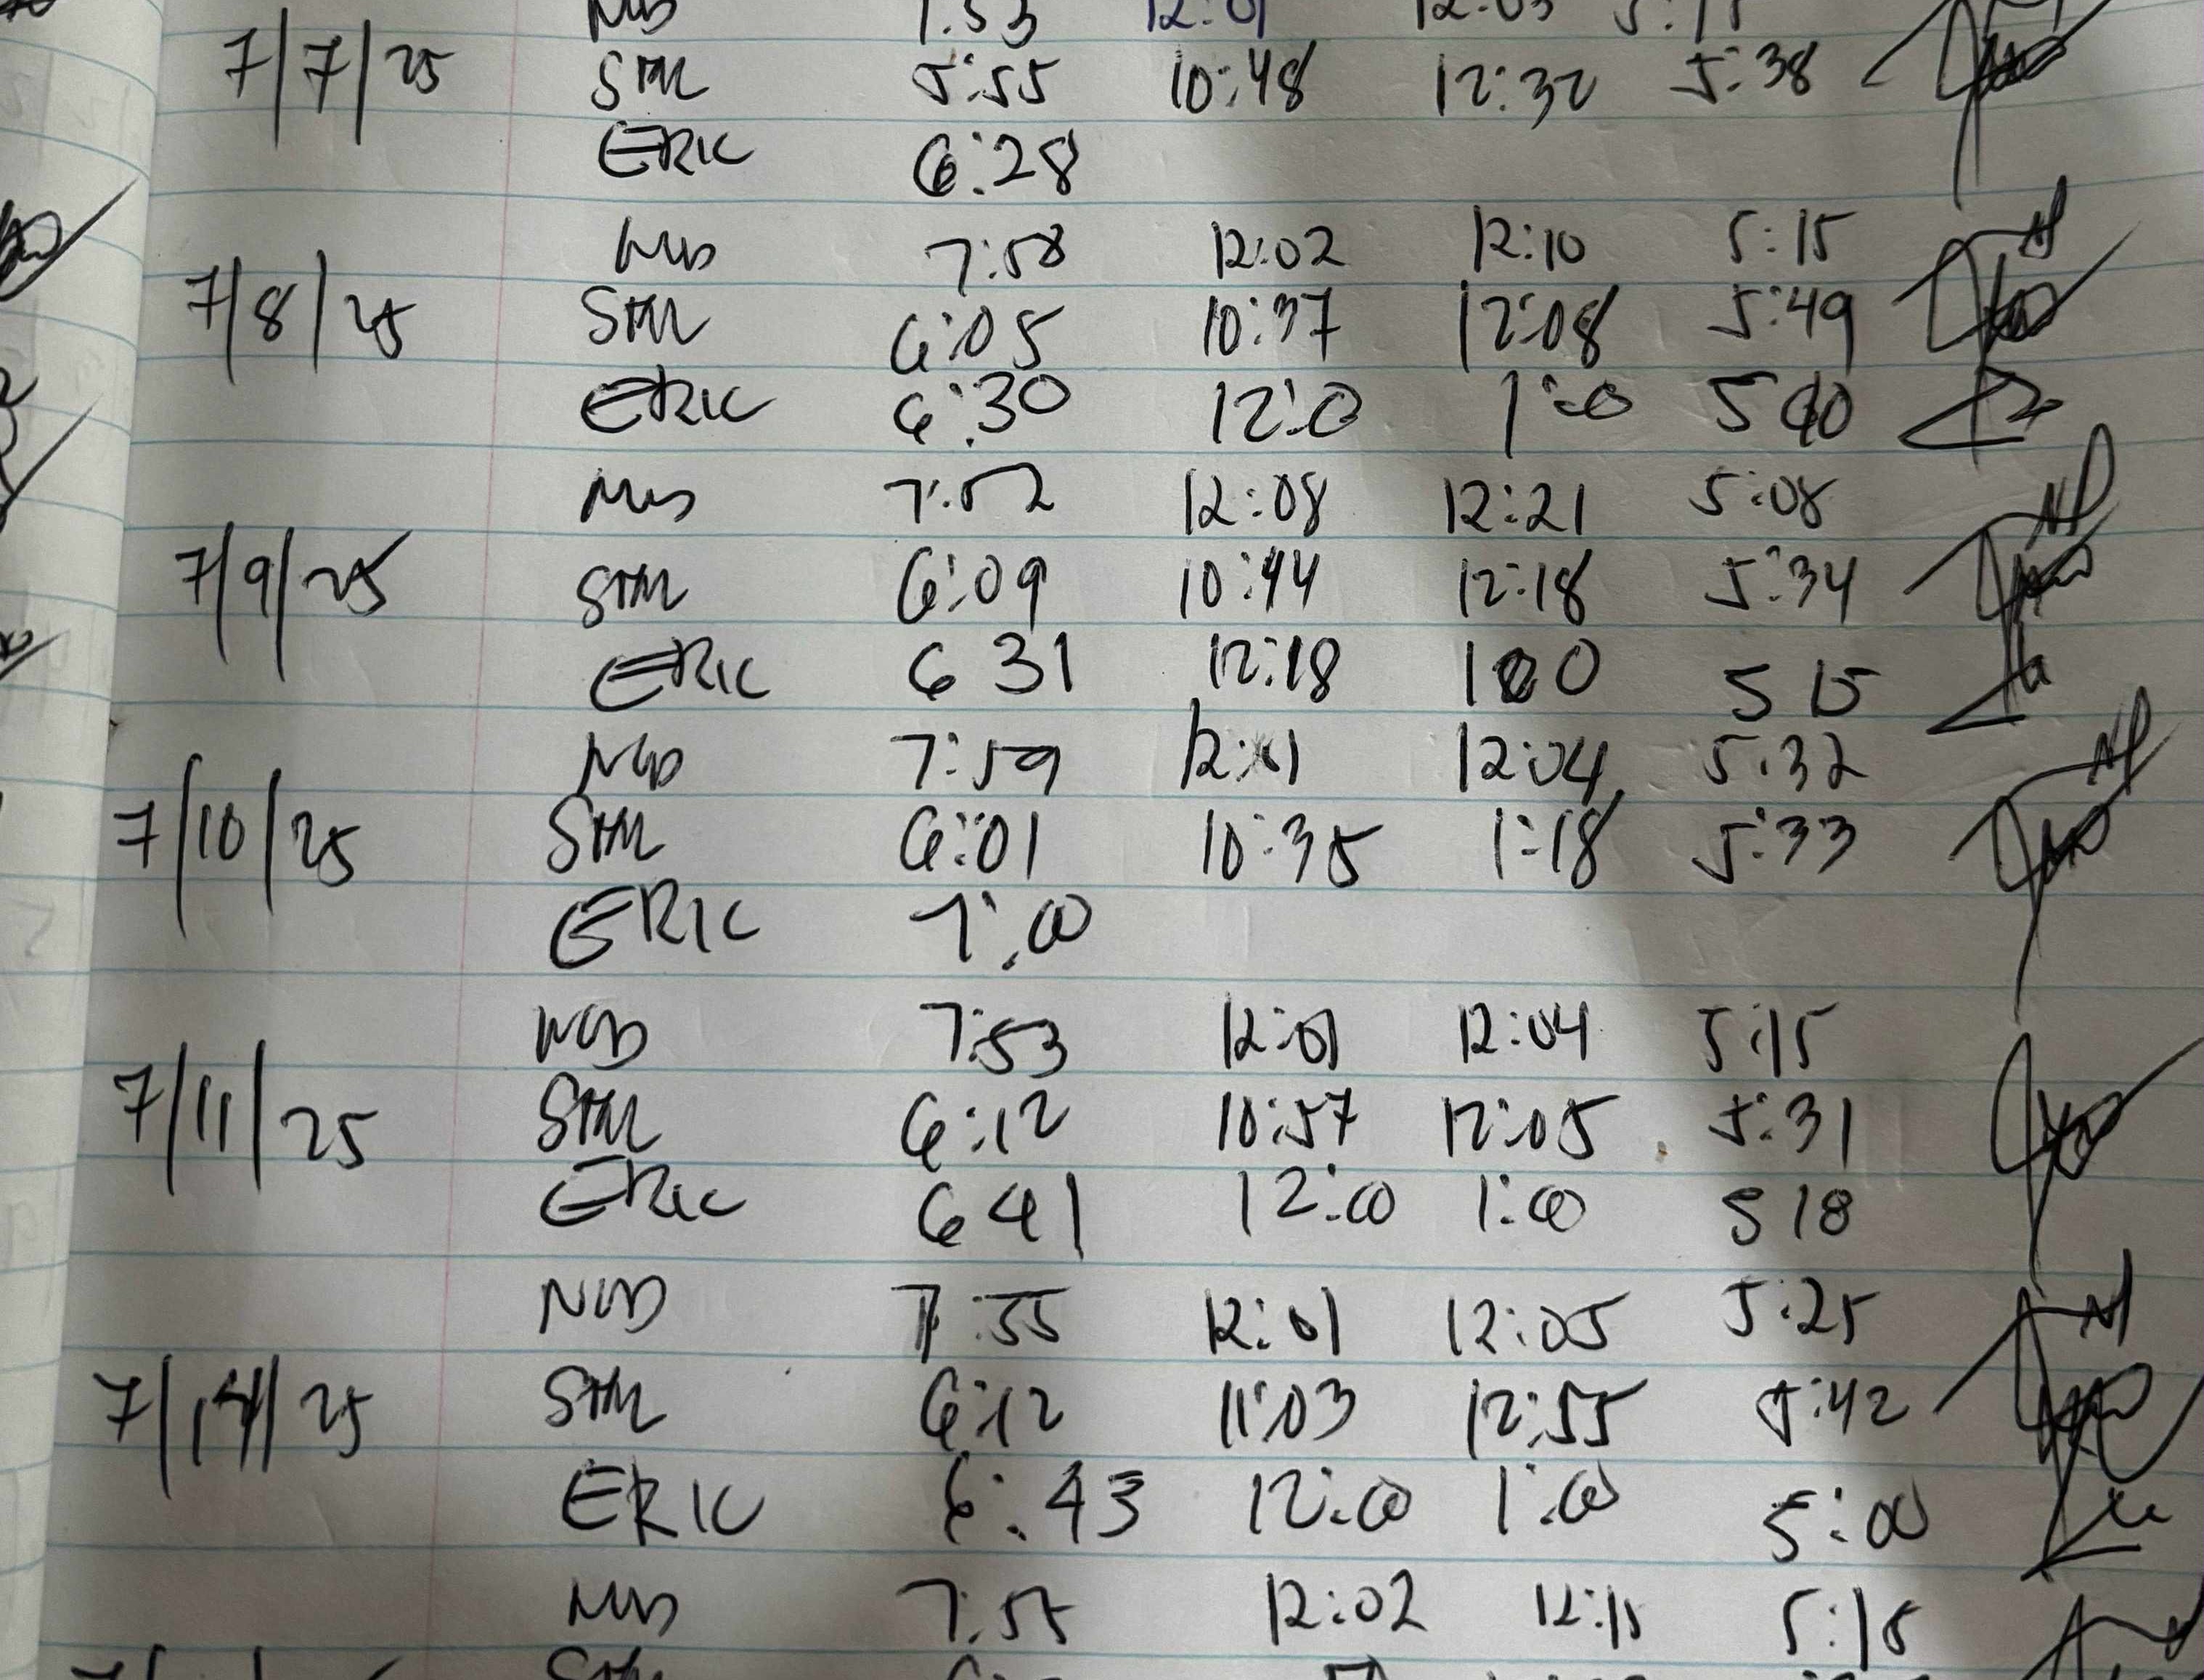 7:53 12:01 12:03
7/7/25 STM 5:55 10:48 12:32 5:38
ERIC 6:28
7:58 12:02 12:10 5:15
7/8/25 STM 6:05 10:37 12:08 5:49
ERIC 6:30 12:0 1:0
7:52 12:08 12:21 5:08
7/9/25 STM 6:09 10:44 12:18 5:34
ERIC 6 31 12:18 5 15
NLB 7:59 12:01 12:04 5:32
7/10/25 STM 6:01 10:35 1:18 5:33
ERIC 7:00
NLB 7:53 12:01 12:04 5:15
7/11/25 STM 6:12 10:57 12:05 5:31
ERIC 6 41 12:00 1:00 5 18
NLB 7:55 12:01 12:05 5:25
7/14/25 STM 6:12 11:03 12:55 5:42
ERIC 6:43 12:00 1:00 5:00
7:55 12:02 12:11 5:18